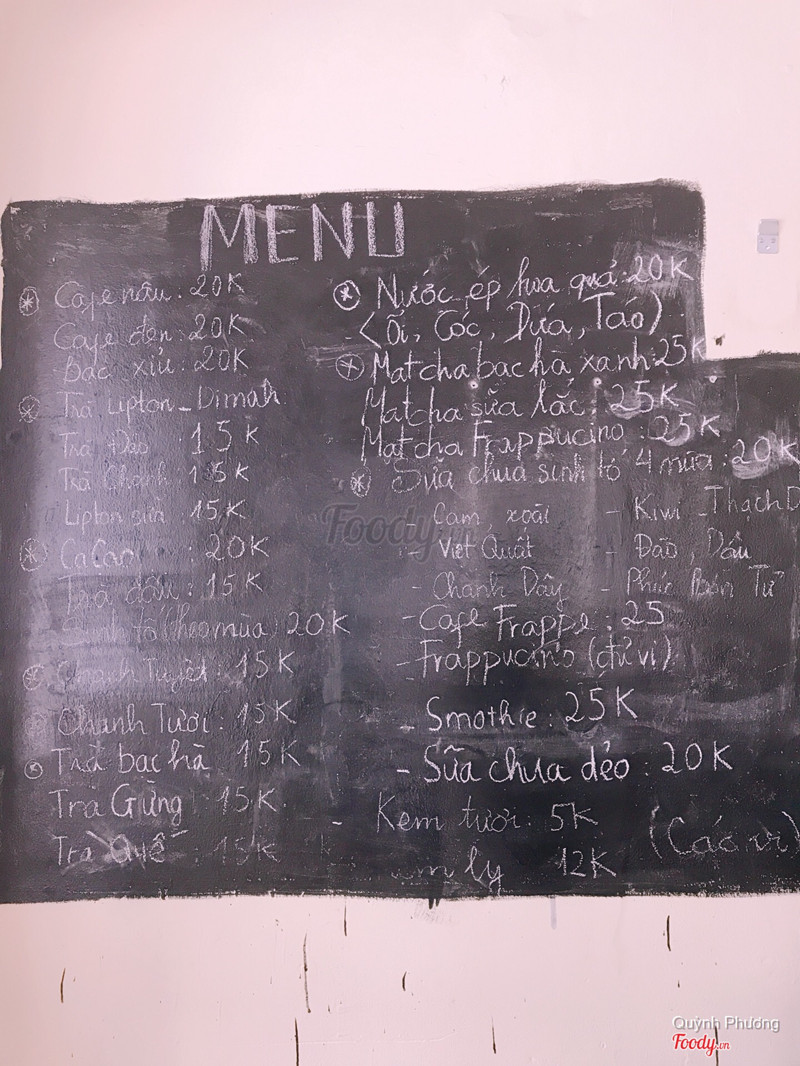 MENU
Cafe nâu: 20K
Cafe đen: 20K
Bạc xỉu: 20K
Trà Lipton - Dimah
Trà Đào 15K
Trà Chanh 15K
Lipton sữa 15K
CaCao : 20K
Trà dâu: 15K
Sinh tố (theo mùa) 20K
Chanh Tuyết: 15K
Chanh Tươi: 15K
Trà bạc hà 15K
Trà Gừng 15K
Trà Quế : 15K
Nước ép hoa quả: 20K
(Ổi, Cóc, Dứa, Táo)
Matcha bạc hà xanh: 25K
Matcha sữa lắc: 25K
Matcha Frappucino: 25K
Sữa chua sinh tố 4 mùa: 20K
- Cam, xoài - Kiwi - Thạch D
- Việt Quất - Đào, Dâu
- Chanh Dây - Phúc Bồn Tử
- Cafe Frappe: 25
- Frappucino (đủ vị)
- Smothie: 25K
- Sữa chua dẻo: 20K
- Kem tươi: 5K (Các vị)
ly 12K
Foody.vn
Quỳnh Phương
Foody.vn